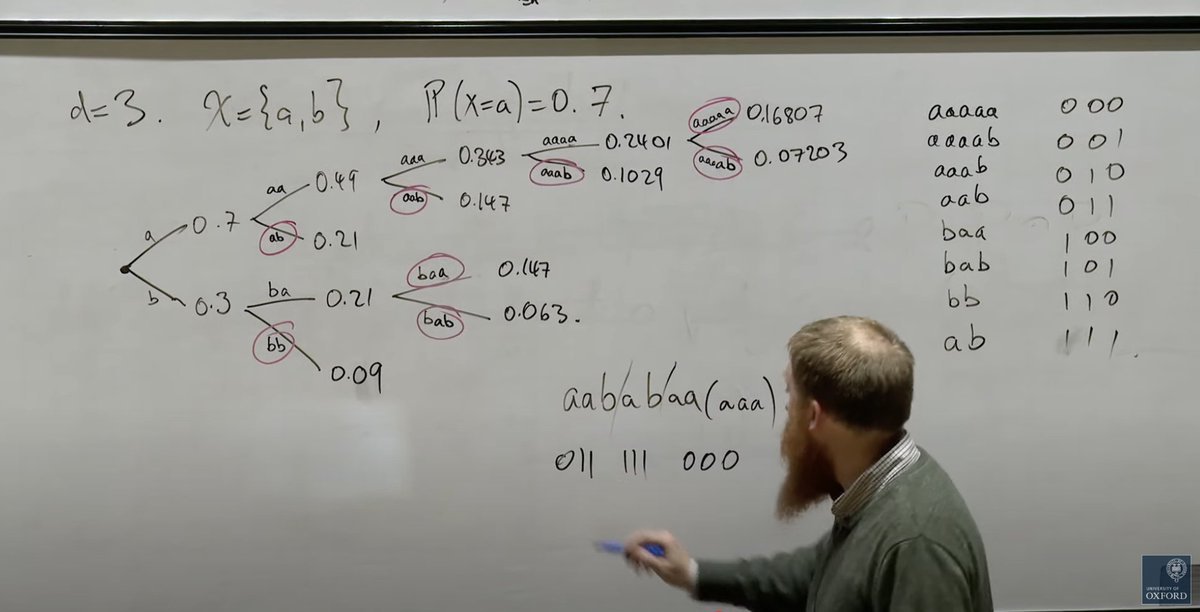 d=3. X={a,b}, P(x=a)=0.7.
a 0.7
aa 0.49
aaa 0.343
aaaa 0.2401
aaaaa 0.16807
aaaab 0.07203
aaab 0.1029
aab 0.147
ab 0.21
b 0.3
ba 0.21
baa 0.147
bab 0.063.
bb 0.09
aab/ab/aa(aaa)
011 111 000
aaaaa 000
aaaab 001
aaab 010
aab 011
baa 100
bab 101
bb 110
ab 111.
UNIVERSITY OF
OXFORD